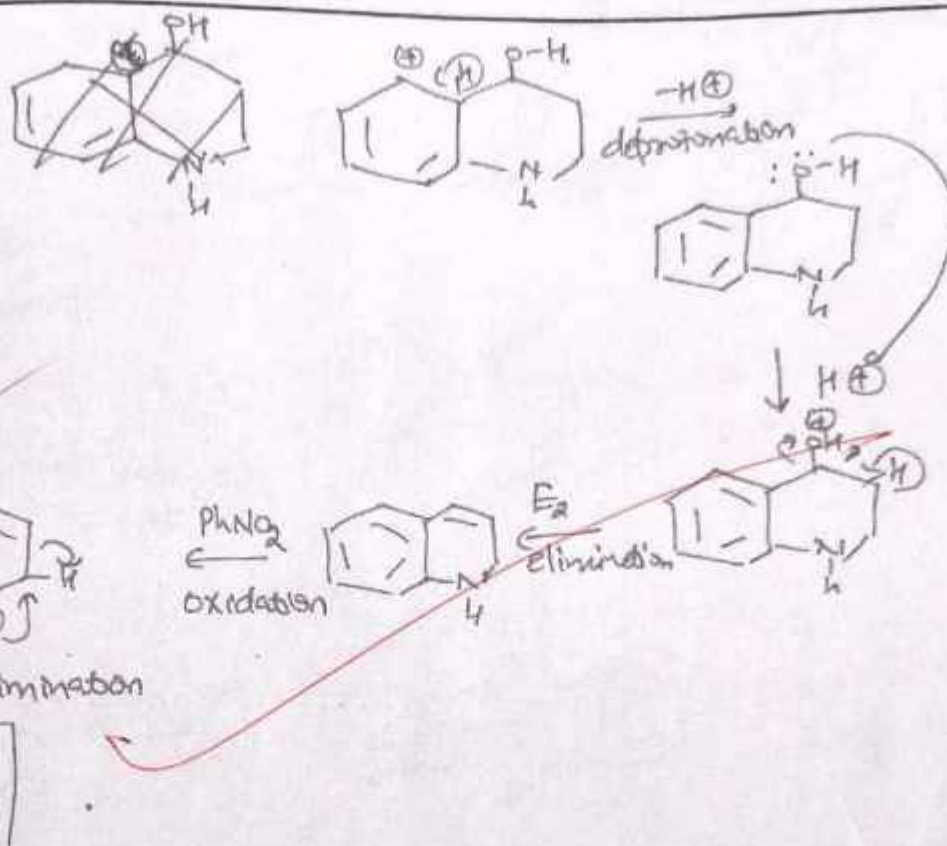 OH
⊕
N
H
⊕
H
O-H
N
H
-H⊕
deprotonation
:Ö-H
N
H
H⊕
⊕
OH
H
N
H
E2
Elimination
N
H
PhNO2
oxidation
H
imination